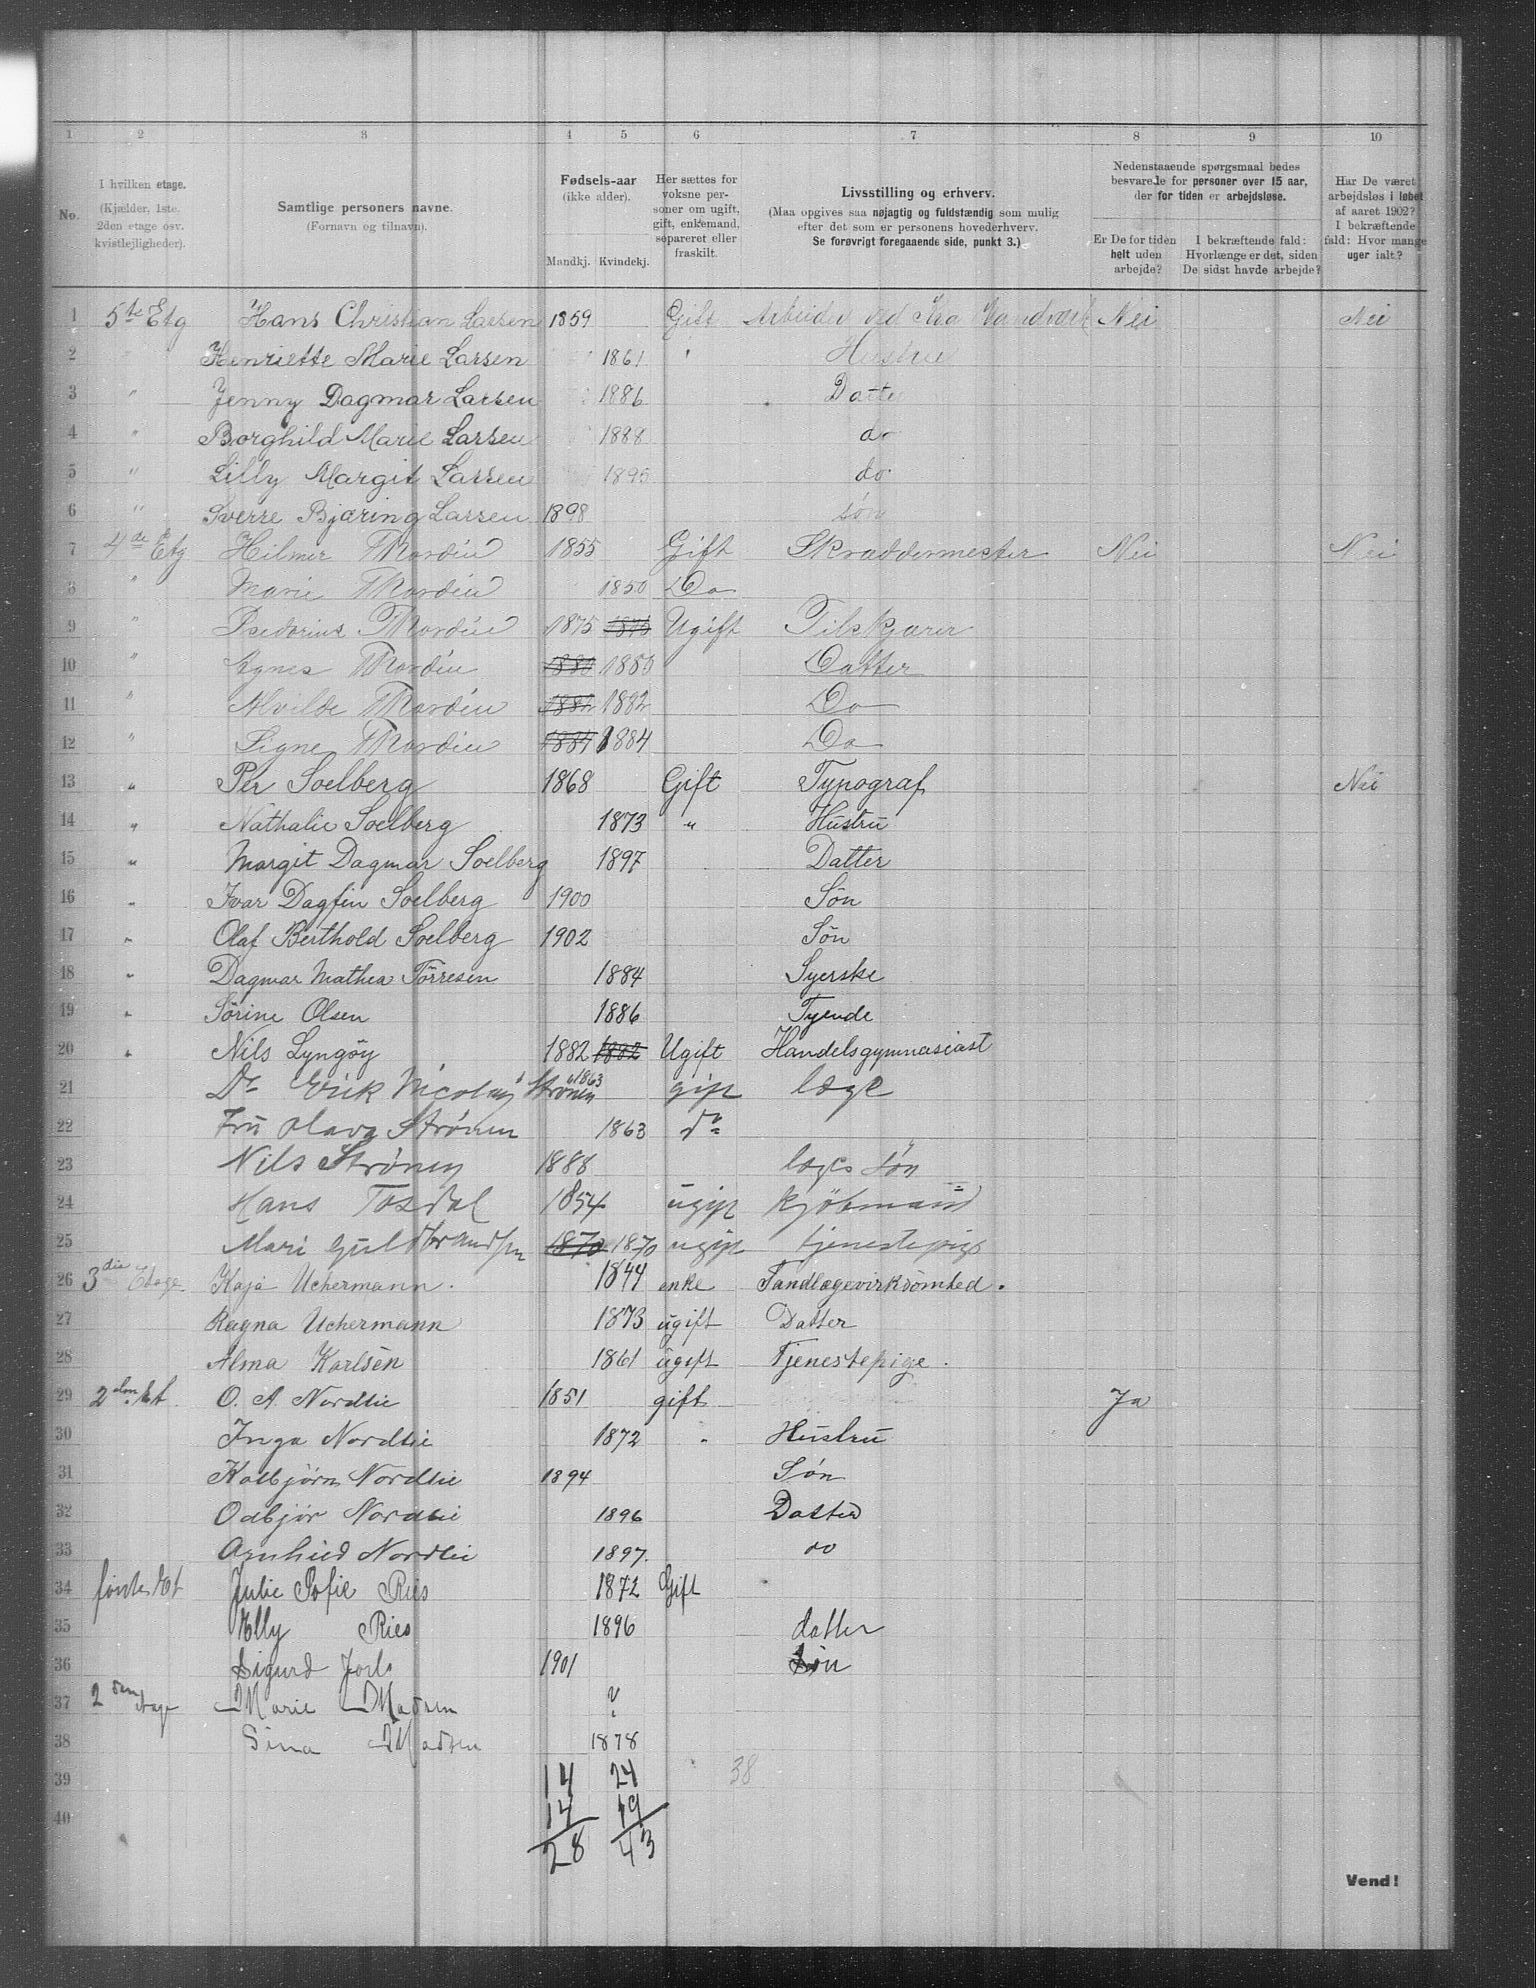 1 2 3 4 5 6 7 8 9 10
No.
I hvilken etage.
(Kjælder, 1ste.
2den etage osv.
kvistlejligheder).
Samtlige personers navne.
(Fornavn og tilnavn).
Fødsels-aar
(ikke alder).
Mandkj. Kvindekj.
Her sættes for
voksne per-
soner om ugift,
gift, enkemand,
separeret eller
fraskilt.
Livsstilling og erhverv.
(Maa opgives saa nøjagtig og fuldstændig som mulig
efter det som er personens hovederhverv.
Se forøvrigt foregaaende side, punkt 3.)
Nedenstaaende spørgsmaal bedes
besvarede for personer over 15 aar,
der for tiden er arbejdsløse.
Er De for tiden
helt uden
arbejde?
I bekræftende fald:
Hvorlænge er det, siden
De sidst havde arbejde?
Har De været
arbejdsløs i løbet
af aaret 1902?
I bekræftende
fald: Hvor mange
uger ialt?
1 5te Etg Hans Christian Larsen 1859 Gift Arbeider ved Nei Nei
2 " Henriette Marie Larsen 1861 " Hustru
3 " Jenny Dagmar Larsen 1886 Datter
4 " Borghild Marie Larsen 1888 do
5 " Lilly Margit Larsen 1895 do
6 " Sverre Bjæring Larsen 1898 søn
7 4de Etg Hilmer Nordin 1855 Gift Skræddermester Nei Nei
8 " Marie Nordin 1850 Do
9 " Nordin 1875 1875 Ugift
10 " Agnes Nordin 1880 1880 Datter
11 " Alvilde Nordin 1882 1882 Do
12 " Signe Nordin 1884 1884 Do
13 " Per Soelberg 1868 Gift Typograf Nei
14 " Nathalie Soelberg 1873 " Hustru
15 " Margit Dagmar Soelberg 1897 Datter
16 " Ivar Dagfin Soelberg 1900 Søn
17 " Olaf Berthold Soelberg 1902 Søn
18 " Dagmar Mathea Törresen 1884 Syerske
19 " Sörine Olsen 1886 Tyende
20 " Nils Lyngöy 1882 1882 Ugift Handelsgymnasiast
21 Dr Erik Nicolay Strønen 1863 gift læge
22 Fru Olava Strönen 1863 do
23 Nils Strönen 1888 læges søn
24 Hans Tosdal 1854 ugift kjöbmand
25 Mari Guldbrandsen 1870 1870 ugift tjenestepige
26 3die Etage Kaja Uchermann. 1844 enke Tandlægevirksomhed.
27 Ragna Uchermann 1873 ugift Datter
28 Alma Karlsen 1861 ugift Tjenestepige.
29 2den Et O. A. Nordlie 1851 gift Ja
30 Inga Nordlie 1872 " Hustru
31 Kolbjörn Nordlie 1894 Søn
32 Odbjør Nordlie 1896 Datter
33 Arnhild Nordlie 1897. do
34 Julie Sofie Ries 1872 Gift
35 Elly Ries 1896 datter
36 Sigurd 1901 Søn
37 2den etage Marie Madsen ?
38 Sina Madsen 1878
39 14 24 38
40 14 19
28 43
Vend!